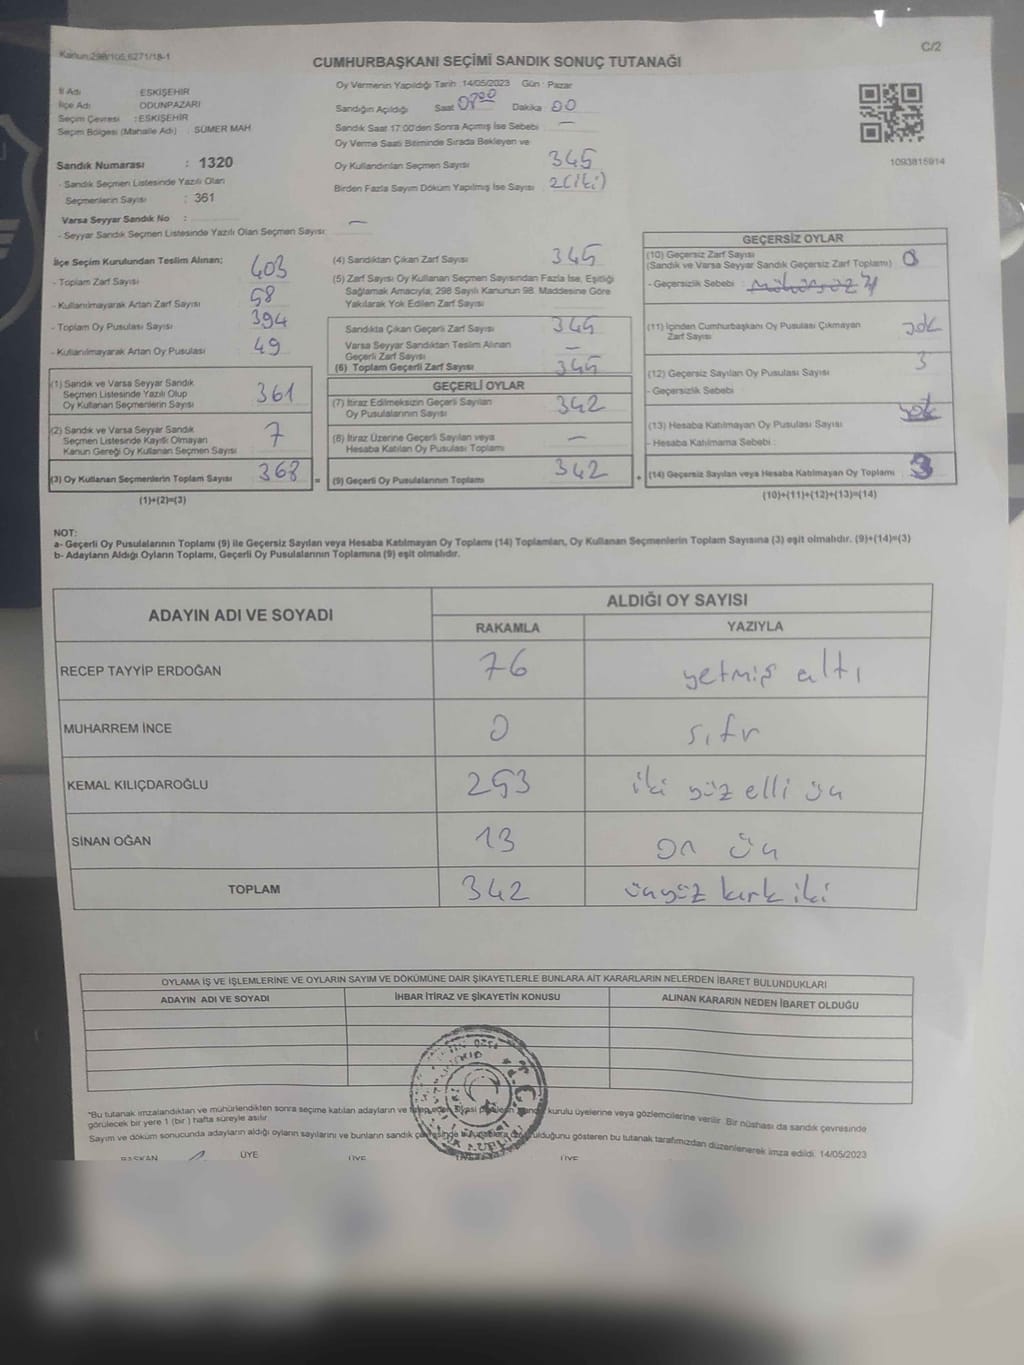 Kanun:298/105,6271/18-1
C/2
CUMHURBAŞKANI SEÇİMİ SANDIK SONUÇ TUTANAĞI
İl Adı ESKİŞEHİR
İlçe Adı ODUNPAZARI
Seçim Çevresi :ESKİŞEHİR
Seçim Bölgesi (Mahalle Adı) : SÜMER MAH
Sandık Numarası : 1320
- Sandık Seçmen Listesinde Yazılı Olan
Seçmenlerin Sayısı : 361
Varsa Seyyar Sandık No :
- Seyyar Sandık Seçmen Listesinde Yazılı Olan Seçmen Sayısı: —
Oy Vermenin Yapıldığı Tarih : 14/05/2023 Gün : Pazar
Sandığın Açıldığı Saat 0800 Dakika 00
Sandık Saat 17:00'den Sonra Açımış İse Sebebi —
Oy Verme Saati Bitiminde Sırada Bekleyen ve
Oy Kullandırılan Seçmen Sayısı 345
Birden Fazla Sayım Döküm Yapılmış İse Sayısı 2(iki)
1093815914
İlçe Seçim Kurulundan Teslim Alınan;
- Toplam Zarf Sayısı 403
- Kullanılmayarak Artan Zarf Sayısı 58
- Toplam Oy Pusulası Sayısı 394
- Kullanılmayarak Artan Oy Pusulası 49
(1) Sandık ve Varsa Seyyar Sandık
Seçmen Listesinde Yazılı Olup
Oy Kullanan Seçmenlerin Sayısı 361
(2) Sandık ve Varsa Seyyar Sandık
Seçmen Listesinde Kayıtlı Olmayan
Kanun Gereği Oy Kullanan Seçmen Sayısı 7
(3) Oy Kullanan Seçmenlerin Toplam Sayısı 368
(1)+(2)=(3)
(4) Sandıktan Çıkan Zarf Sayısı 345
(5) Zarf Sayısı Oy Kullanan Seçmen Sayısından Fazla İse, Eşitliği
Sağlamak Amacıyla; 298 Sayılı Kanunun 98. Maddesine Göre
Yakılarak Yok Edilen Zarf Sayısı
Sandıkta Çıkan Geçerli Zarf Sayısı 345
Varsa Seyyar Sandıktan Teslim Alınan
Geçerli Zarf Sayısı —
(6) Toplam Geçerli Zarf Sayısı 345
GEÇERLİ OYLAR
(7) İtiraz Edilmeksizin Geçerli Sayılan
Oy Pusulalarının Sayısı 342
(8) İtiraz Üzerine Geçerli Sayılan veya
Hesaba Katılan Oy Pusulası Toplamı —
= (9) Geçerli Oy Pusulalarının Toplamı 342
GEÇERSİZ OYLAR
(10) Geçersiz Zarf Sayısı
(Sandık ve Varsa Seyyar Sandık Geçersiz Zarf Toplamı) 0
- Geçersizlik Sebebi :
(11) İçinden Cumhurbaşkanı Oy Pusulası Çıkmayan
Zarf Sayısı yok
(12) Geçersiz Sayılan Oy Pusulası Sayısı 3
- Geçersizlik Sebebi
(13) Hesaba Katılmayan Oy Pusulası Sayısı yok
- Hesaba Katılmama Sebebi :
+ (14) Geçersiz Sayılan veya Hesaba Katılmayan Oy Toplamı 3
(10)+(11)+(12)+(13)=(14)
NOT:
a- Geçerli Oy Pusulalarının Toplamı (9) ile Geçersiz Sayılan veya Hesaba Katılmayan Oy Toplamı (14) Toplamları, Oy Kullanan Seçmenlerin Toplam Sayısına (3) eşit olmalıdır. (9)+(14)=(3)
b- Adayların Aldığı Oyların Toplamı, Geçerli Oy Pusulalarının Toplamına (9) eşit olmalıdır.
ADAYIN ADI VE SOYADI ALDIĞI OY SAYISI
RAKAMLA YAZIYLA
RECEP TAYYİP ERDOĞAN 76 yetmiş altı
MUHARREM İNCE 0 sıfır
KEMAL KILIÇDAROĞLU 253 iki yüz elli üç
SİNAN OĞAN 13 on üç
TOPLAM 342 üçyüz kırk iki
OYLAMA İŞ VE İŞLEMLERİNE VE OYLARIN SAYIM VE DÖKÜMÜNE DAİR ŞİKAYETLERLE BUNLARA AİT KARARLARIN NELERDEN İBARET BULUNDUKLARI
ADAYIN ADI VE SOYADI İHBAR İTİRAZ VE ŞİKAYETİN KONUSU ALINAN KARARIN NEDEN İBARET OLDUĞU
*Bu tutanak imzalandıktan ve mühürlendikten sonra seçime katılan adayların ve kurulu üyelerine veya gözlemcilerine verilir. Bir nüshası da sandık çevresinde
görülecek bir yere 1 (bir) hafta süreyle asılır
Sayım ve döküm sonucunda adayların aldığı oyların sayılarını ve bunların sandık gösteren bu tutanak tarafımızdan düzenlenerek imza edildi. 14/05/2023
T.C.
BAŞKAN ÜYE ÜYE ÜYE